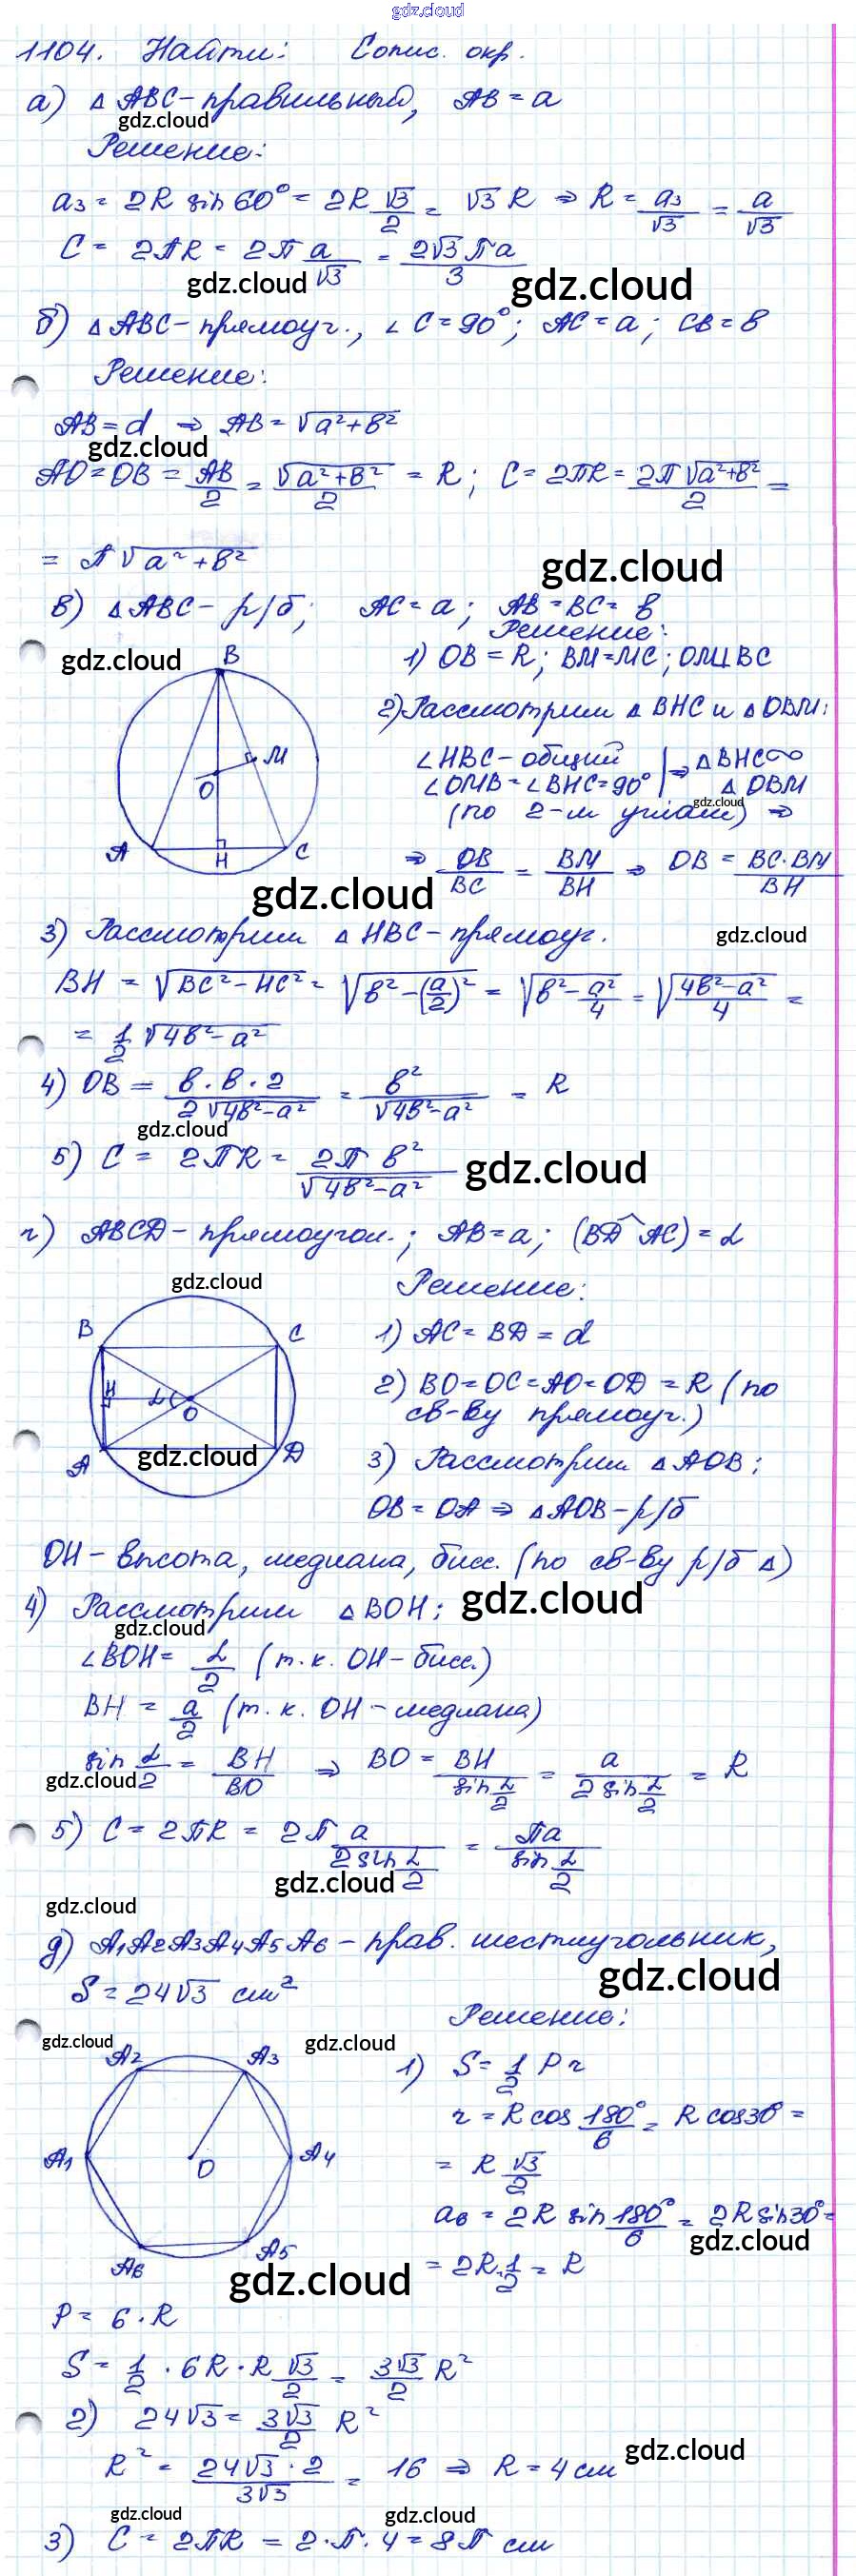 gdz.cloud
1104. Найти: Cопис. окр.
а) △ABC - правильный, AB = a
gdz.cloud
Решение:
a₃ = 2R sin 60° = 2R √3/2 = √3 R ⇒ R = a₃/√3 = a/√3
C = 2πR = 2π a/√3 = 2√3πa/3
gdz.cloud gdz.cloud
б) △ABC - прямоуг., ∠C = 90°; AC = a; CB = в
Решение:
AB = d ⇒ AB = √(a² + в²)
gdz.cloud
AO = OB = AB/2 = √(a² + в²)/2 = R; C = 2πR = 2π√(a² + в²)/2 =
= π√(a² + в²)
gdz.cloud
в) △ABC - р/б; AC = a; AB = BC = в
Решение:
gdz.cloud
1) OB = R; BM = MC; OM⊥BC
2) Рассмотрим △BHC и △OBM:
∠HBC - общий
∠OMB = ∠BHC = 90° | ⇒ △BHC ∾ △OBM
gdz.cloud
(по 2-м углам) ⇒
⇒ OB/BC = BM/BH ⇒ OB = BC·BM/BH
B
M
O
A
H
C
gdz.cloud
3) Рассмотрим △HBC - прямоуг.
gdz.cloud
BH = √(BC² - HC²) = √(в² - (a/2)²) = √(в² - a²/4) = √((4в² - a²)/4) =
= 1/2 √(4в² - a²)
4) OB = в·в·2/2√(4в² - a²) = в²/√(4в² - a²) = R
gdz.cloud
5) C = 2πR = 2π в²/√(4в² - a²)
gdz.cloud
г) ABCD - прямоугол.; AB = a; (BD^AC) = α
gdz.cloud
Решение:
1) AC = BD = d
2) BO = OC = AO = OD = R (по
св-ву прямоуг.)
3) Рассмотрим △AOB:
OB = OA ⇒ △AOB - р/б
B
C
H
α
O
A
D
gdz.cloud
OH - высота, медиана, бисс. (по св-ву р/б △)
4) Рассмотрим △BOH:
gdz.cloud
gdz.cloud
∠BOH = α/2 (т.к. OH - бисс.)
BH = a/2 (т.к. OH - медиана)
sin α/2 = BH/BO ⇒ BO = BH/sin α/2 = a/2 sin α/2 = R
gdz.cloud
5) C = 2πR = 2π a/2 sin α/2 = πa/sin α/2
gdz.cloud
gdz.cloud
д) A₁A₂A₃A₄A₅A₆ - прав. шестиугольник,
S = 24√3 см²
gdz.cloud
Решение:
gdz.cloud gdz.cloud
1) S = 1/2 P r
r = R cos 180°/6 = R cos 30° =
= R √3/2
a₆ = 2R sin 180°/6 = 2R sin 30° =
gdz.cloud
= 2R·1/2 = R
A₂
A₃
A₁
O
A₄
A₆
A₅
gdz.cloud
P = 6·R
S = 1/2 · 6R · R √3/2 = 3√3/2 R²
2) 24√3 = 3√3/2 R²
R² = 24√3·2/3√3 = 16 ⇒ R = 4 см
gdz.cloud
gdz.cloud gdz.cloud
3) C = 2πR = 2·π·4 = 8π см